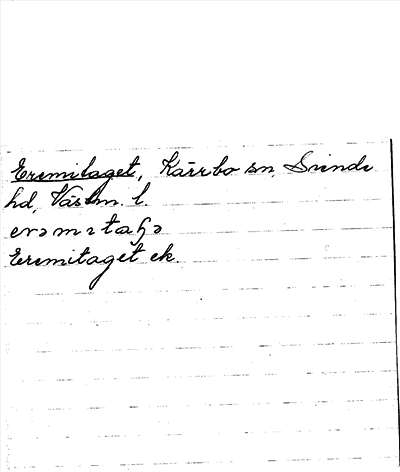 Eremitaget, Kärrbo sn, Siende
hd, Västm. l.
erəmɩtaʒə
Eremitaget ek.